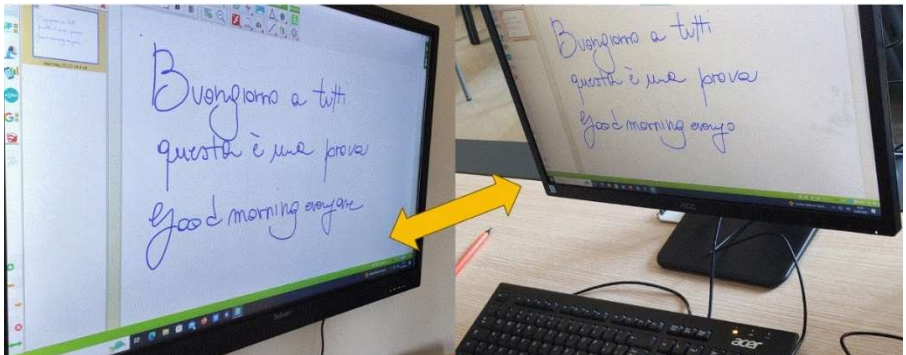 Buongiorno a tutti
questa è una prova
Good morning everyone
Buongiorno a tutti
questa è una prova
Good morning everyo
acer